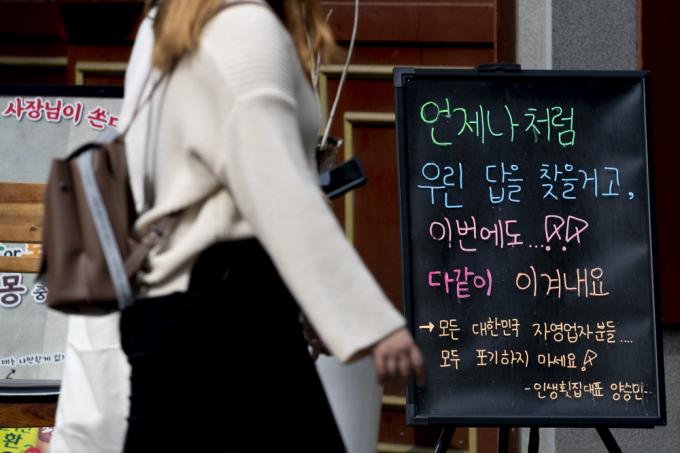 사장님이 쏜다
몽
언제나처럼
우린 답을 찾을거고,
이번에도...!!
다같이 이겨내요
→ 모든 대한민국 자영업자분들....
모두 포기하지 마세요!
- 인생횟집대표 양승민..